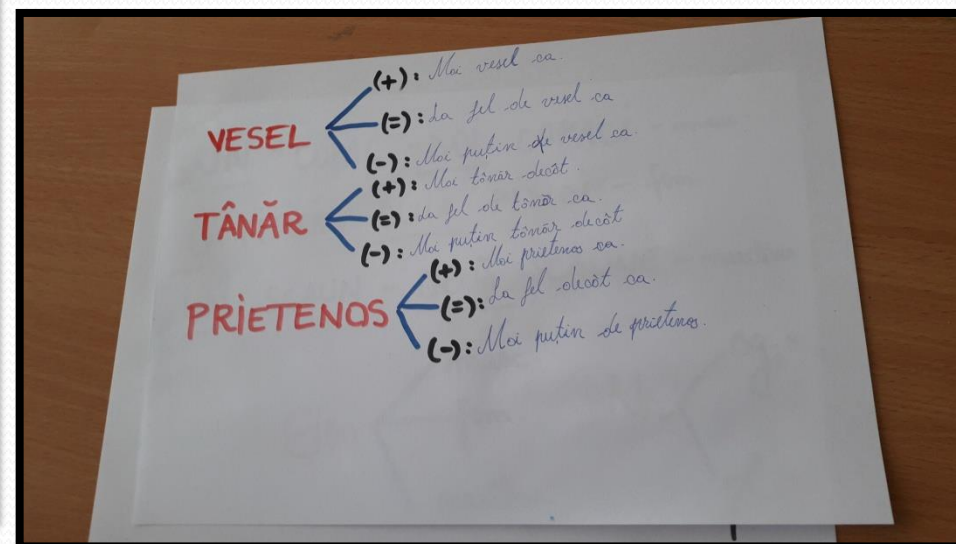 VESEL
(+): Mai vesel ca.
(=): La fel de vesel ca
(-): Mai puțin de vesel ca.
TÂNĂR
(+): Mai tânăr decât.
(=): La fel de tânăr ca.
(-): Mai puțin tânăr decât
PRIETENOS
(+): Mai prietenos ca.
(=): La fel decât ca.
(-): Mai puțin de prietenos.